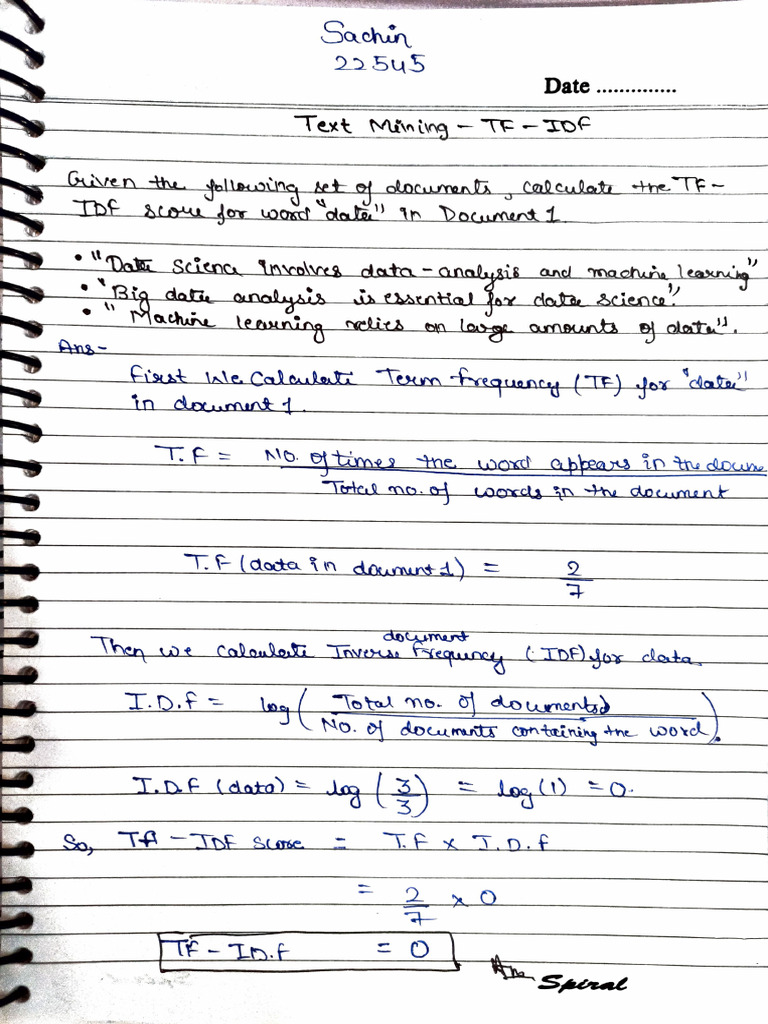 Sachin
22545
Date ..............
Text Mining - TF - IDF
Given the following set of documents, calculate the TF-
IDF score for word "data" in Document 1.
• "Data science involves data-analysis and machine learning"
• "Big data analysis is essential for data science".
• "Machine learning relies on large amounts of data".
Ans-
First We Calculate Term Frequency (TF) for "data"
in document 1.
T.F = No. of times the word appears in the docume
Total no. of words in the document
T.F (data in document 1) = 2
7
document
Then we calculate Inverse Frequency (IDF) for data.
I.D.F = log( Total no. of documents
No. of documents containing the word ).
I.D.F (data) = log ( 3/3 ) = log(1) = 0.
So, TF - IDF score = T.F x I.D.F
= 2/7 x 0
TF - I.D.F = 0
Ans
Spiral